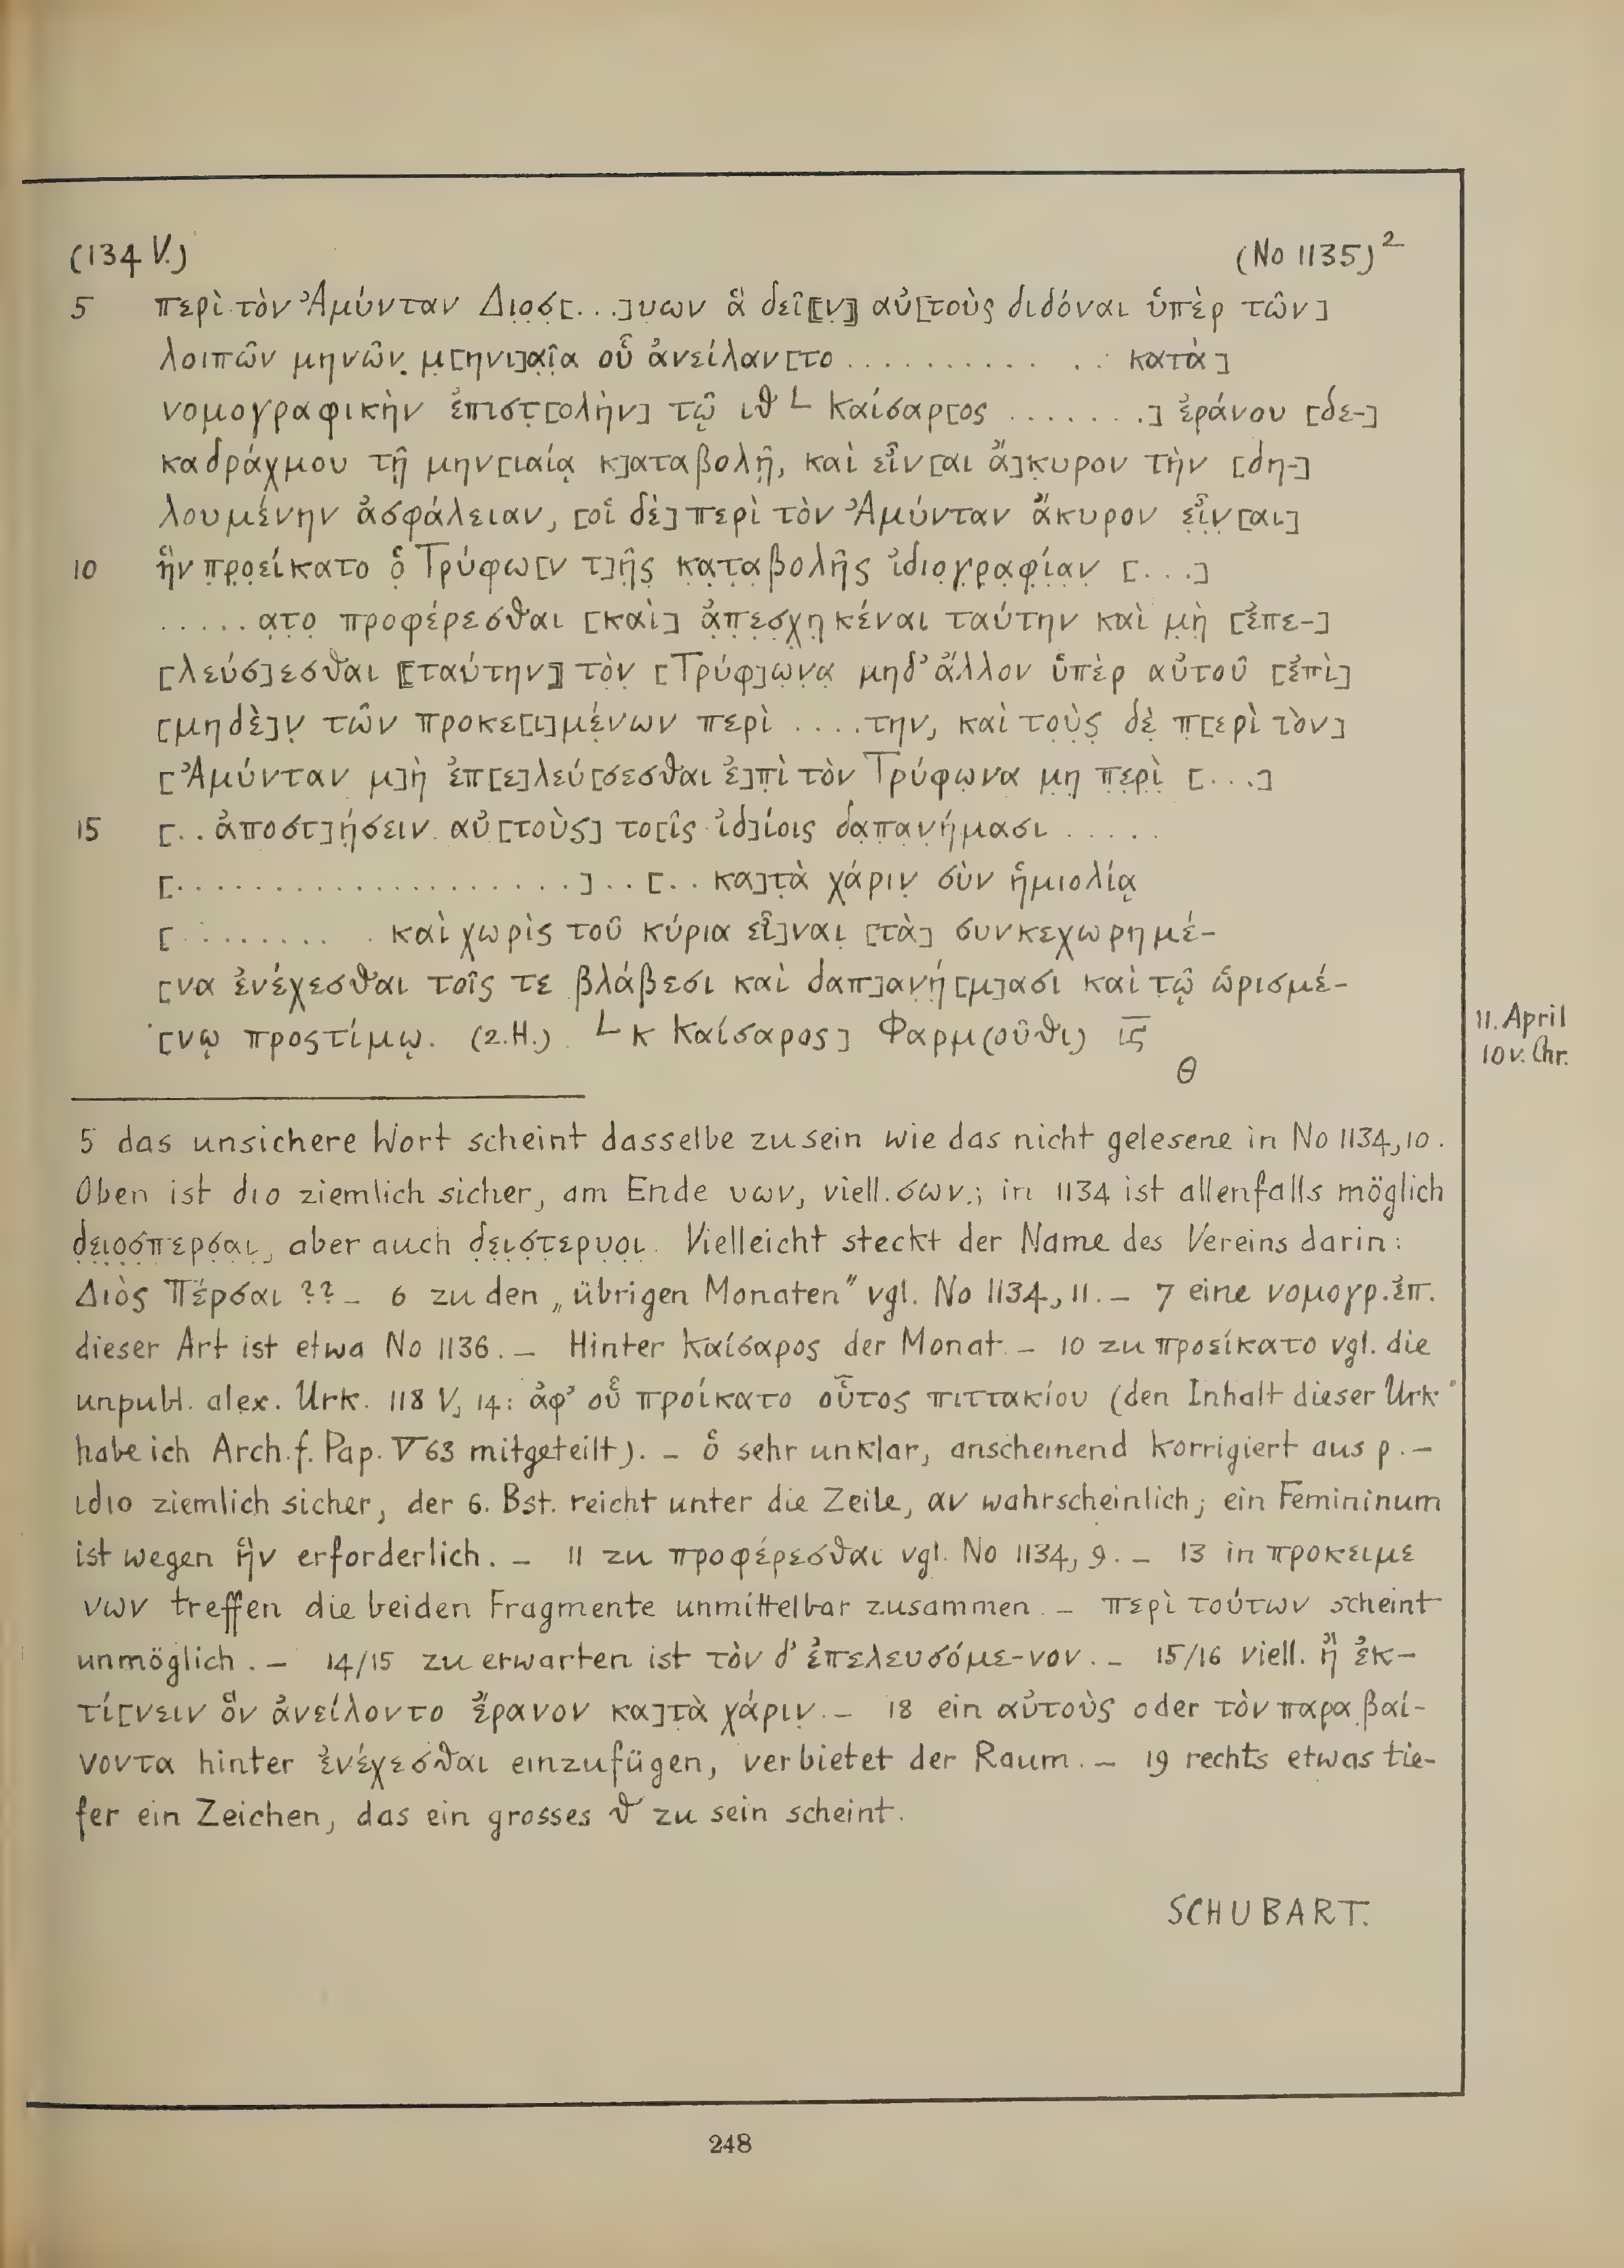 (134 V.) (No 1135)²
5 περὶ τὸν Ἀμύνταν Δι̣ο̣σ̣[...]υων ἃ δεῖ⟦ν̣⟧ αὐ[τοὺς διδόναι ὑπὲρ τῶν]
λοιπῶν μηνῶν̣ μ̣[ηνι]α̣ῖ̣α οὗ ἀνείλαν[το .......... .. κατὰ]
νομογραφικὴν ἐπιστ̣[ολὴν] τῷ ιθ L Καίσαρ[ος .......] ἐράνου [δε-]
καδράχμου τῇ μην[ιαίᾳ κ]αταβολῇ, καὶ εἶν[αι ἄ]κυρον τὴν [δη-]
λουμένην ἀσφάλειαν, [οἱ δὲ] περὶ τὸν Ἀμύνταν ἄκυρον ε̣ἶ̣ν̣[αι]
10 ἣν π̣ρ̣ο̣είκατο ὁ̣ Τρύφω[ν τ]ῆ̣ς̣ κ̣α̣τ̣α̣βολῆς ἰδιο̣γ̣ρ̣α̣φ̣ί̣α̣ν̣ [...]
.....α̣τ̣ο̣ προφέρεσθαι [καὶ] ἀ̣π̣ε̣σ̣χ̣η̣κέναι ταύτην καὶ μ̣ὴ̣ [ἐπε-]
[λεύσ]εσθαι ⟦ταύτην⟧ τὸν̣ [Τρύφ]ω̣ν̣α̣ μηδʼ ἄλλον ὑπὲρ αὐτοῦ [ἐπὶ]
[μηδὲ]ν̣ τῶν προκε[ι]μέ̣νων περὶ ....την, καὶ το̣ὺ̣ς̣ δὲ̣ π̣[ερὶ τὸν]
[Ἀμύνταν μ]ὴ̣ ἐπ[ε]λεύ[σεσθαι ἐ]π̣ὶ τὸν Τρύφω̣να μ̣η̣ π̣ε̣ρ̣ὶ̣ [...]
15 [..ἀποστ]ή̣σειν αὐ[τοὺς] το[ῖς ἰδ]ίοις δα̣π̣α̣ν̣ή̣μασι .....
[....................]..[..κα]τ̣ὰ χάριν̣ σὺν ἡμιολίᾳ
[......... καὶ χωρὶς τοῦ κύρια εἶ]ναι̣ [τὰ] συνκεχωρημέ-
[να ἐνέχεσθαι τοῖς τε βλάβεσι καὶ δαπ]α̣νή̣[μ]ασι καὶ τ̣ῷ̣ ὡρισμέ-
[νῳ προςτίμῳ. (2.H.) L κ Καίσαρος] Φαρμ(οῦθι) ι̅ς̅
11. April
10 v. Chr.
θ
5 das unsichere Wort scheint dasselbe zu sein wie das nicht gelesene in No 1134,10.
Oben ist διο ziemlich sicher, am Ende υων, viell. σων.; in 1134 ist allenfalls möglich
δ̣ε̣ι̣ο̣σ̣π̣ε̣ρ̣σ̣α̣ι̣, aber auch δ̣ε̣ι̣σ̣τ̣ε̣ρ̣υ̣ο̣ι̣. Vielleicht steckt der Name des Vereins darin:
Διὸς Πέρσαι ?? – 6 zu den „übrigen Monaten" vgl. No 1134, 11. – 7 eine νομογρ. ἐπ.
dieser Art ist etwa No 1136. – Hinter Καίσαρος der Monat – 10 zu προείκατο vgl. die
unpubl. alex. Urk. 118 V, 14: ἀφʼ οὗ προίκατο οὗτος πιττακίου (den Inhalt dieser Urk
habe ich Arch. f. Pap. V 63 mitgeteilt). – ὁ sehr unklar, anscheinend korrigiert aus ρ. –
ιδιο ziemlich sicher, der 6. Bst. reicht unter die Zeile, αν wahrscheinlich; ein Femininum
ist wegen ἣν erforderlich. – 11 zu προφέρεσθαι vgl. No 1134, 9. – 13 in προκειμε
νων treffen die beiden Fragmente unmittelbar zusammen. – περὶ τούτων scheint
unmöglich. – 14/15 zu erwarten ist τὸν δʼ ἐπελευσόμε-νον. – 15/16 viell. ἢ ἐκ-
τί[νειν ὃν ἀνείλοντο ἔρανον κα]τ̣ὰ χάριν̣. – 18 ein αὐτοὺς oder τὸν παραβαί-
νοντα hinter ἐνέχεσθαι einzufügen, verbietet der Raum. – 19 rechts etwas tie-
fer ein Zeichen, das ein grosses ϑ zu sein scheint.
SCHUBART.
248